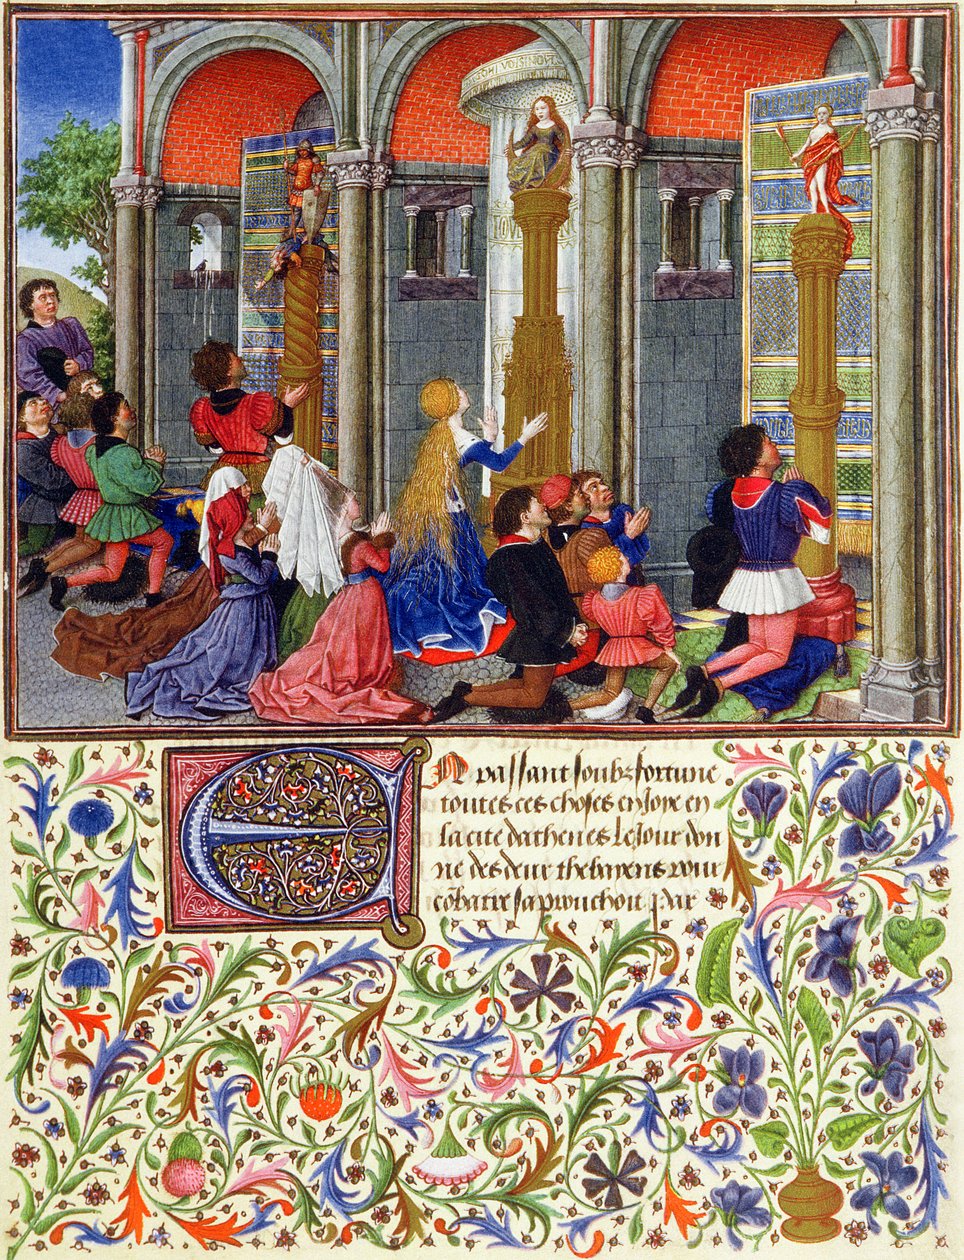 EN passant soubz fortune
toutes ces choses en joye en
la cite dathenes le jour don
ne des deux thebayens pour
cobatre saprouchoit par